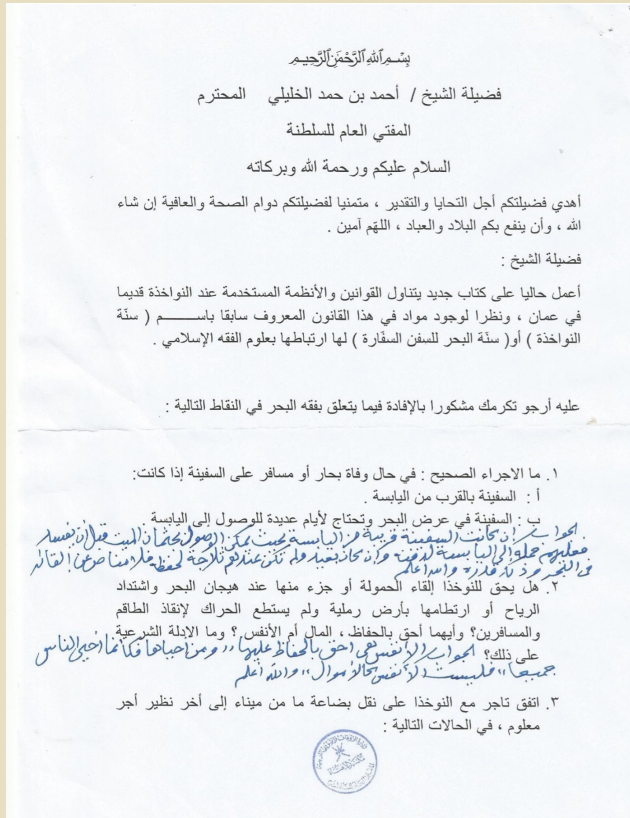 بِسْمِ اللهِ الرَّحْمَنِ الرَّحِيمِ
فضيلة الشيخ / أحمد بن حمد الخليلي المحترم
المفتي العام للسلطنة
السلام عليكم ورحمة الله وبركاته
أهدي فضيلتكم أجل التحايا والتقدير ، متمنيا لفضيلتكم دوام الصحة والعافية إن شاء
الله ، وأن ينفع بكم البلاد والعباد ، اللهّم آمين .
فضيلة الشيخ :
أعمل حاليا على كتاب جديد يتناول القوانين والأنظمة المستخدمة عند النواخذة قديما
في عمان ، ونظرا لوجود مواد في هذا القانون المعروف سابقا باســـــم ( سنّة
النواخذة ) أو( سنّة البحر للسفن السفّارة ) لها ارتباطها بعلوم الفقه الإسلامي .
عليه أرجو تكرمك مشكورا بالإفادة فيما يتعلق بفقه البحر في النقاط التالية :
١. ما الاجراء الصحيح : في حال وفاة بحار أو مسافر على السفينة إذا كانت:
أ : السفينة بالقرب من اليابسة .
ب : السفينة في عرض البحر وتحتاج لأيام عديدة للوصول إلى اليابسة
الجواب إن كانت السفينة قريبة من اليابسة بحيث يمكن الوصول بجثمان الميت قبل أن يفسد
فعليهم حمله إلى اليابسة لدفنه وإن كان بعيد ولم تكن عندهم ثلاجة لحفظه فلا مناص عن إلقائه
في البحر والله أعلم
٢. هل يحق للنوخذا إلقاء الحمولة أو جزء منها عند هيجان البحر واشتداد
الرياح أو ارتطامها بأرض رملية ولم يستطع الحراك لإنقاذ الطاقم
والمسافرين؟ وأيهما أحق بالحفاظ ، المال أم الأنفس ؟ وما الإدلة الشرعية
على ذلك؟ الجواب الأنفس هي أحق بالحفاظ عليها ،، ومن أحياها فكأنما أحيى الناس
جميعا ،، فليست الأنفس كالأموال ،، والله أعلم
٣. اتفق تاجر مع النوخذا على نقل بضاعة ما من ميناء إلى أخر نظير أجر
معلوم ، في الحالات التالية :